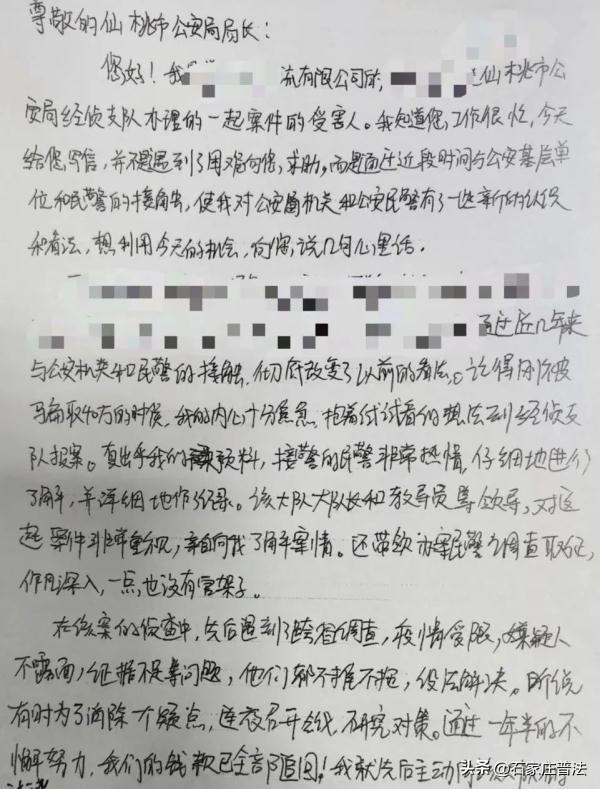 尊敬的仙桃市公安局局长：
您好！我 流有限公司所 是仙桃市公
安局经侦支队办理的一起案件的受害人。我知道您工作很忙，今天
给您写信，并不是遇到了困难向您求助，而是通过近段时间与公安基层单
位和民警的接触，使我对公安机关和公安民警有了一些新的认识
和看法，想利用今天的机会，向您说几句心里话。
通过近几年来
与公安机关和民警的接触，彻底改变了以前的看法。记得刚被
骗取40万的时候，我的内心十分焦急，抱着试试看的想法到经侦支
队报案。真出乎我的预料，接警的民警非常热情，仔细地进行
了解，并详细地作了记录。该大队大队长和教导员等领导，对这
起案件非常重视，亲自向我了解案情。还带领办案民警调查取证，
作风深入，一点也没有官架子。
在该案的侦查中，先后遇到了跨省调查，疫情受限，嫌疑人
不露面，证据不足等问题，他们都不推不拖，设法解决。听说
有时为了消除一个疑点，连夜召开会议，研究对策。通过一年半的不
懈努力，我们的钱款已全部追回！我就先后主动向
头条 @石家庄普法